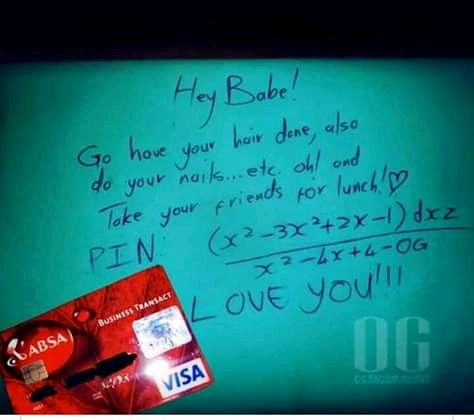 Hey Babe!
Go have your hair done, also
do your nails...etc. oh! and
Take your friends for lunch!♡
PIN: (x²-3x²+2x-1)dxz
x²-4x+4-OG
LOVE YOU!!!
ABSA
BUSINESS TRANSACT
VISA
OG